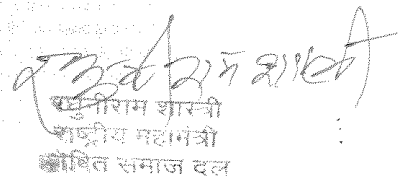 रघुनीराम शास्त्री
रघुनीराम शास्त्री
राष्ट्रीय महामंत्री
शोषित समाज दल